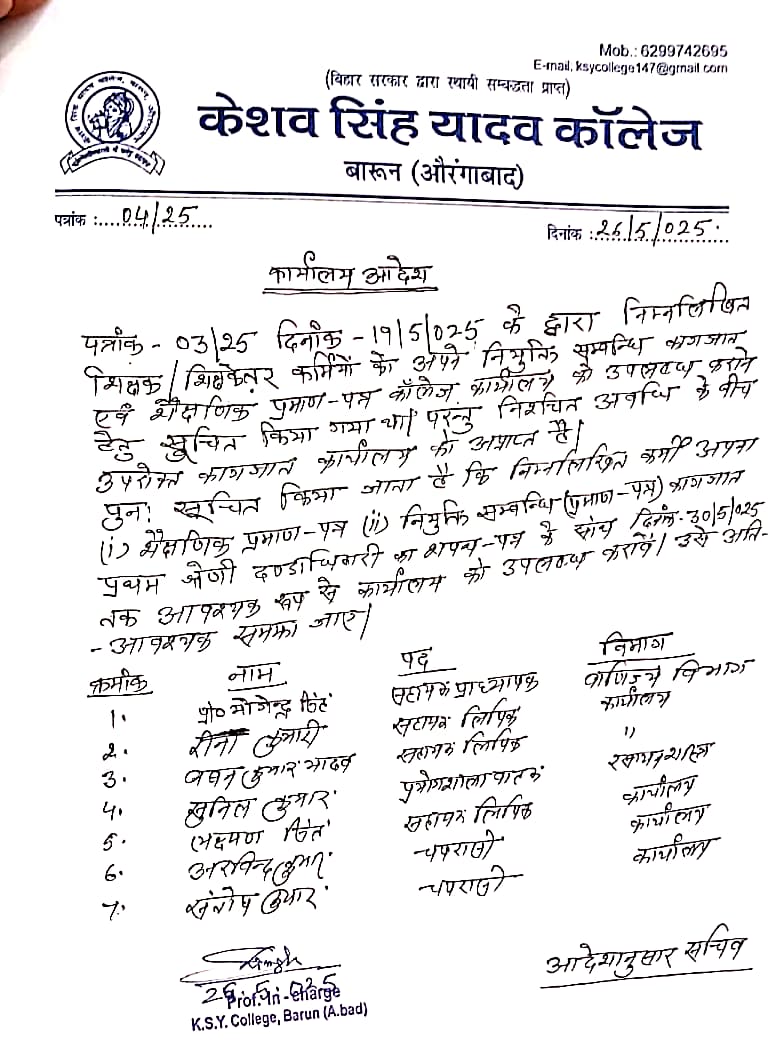 Mob.: 6299742695
E-mail, ksycollege147@gmail com
(बिहार सरकार द्वारा स्थायी सम्बद्धता प्राप्त)
केशव सिंह यादव कॉलेज
बारून (औरंगाबाद)
पत्रांक :....04/25....
दिनांक :.26/5/025.
कार्यालय आदेश
पत्रांक - 03/25 दिनांक - 19/5/025 के द्वारा निम्नलिखित
शिक्षक / शिक्षकेतर कर्मियों को अपने नियुक्ति सम्बन्धि कागजात
एवं शैक्षणिक प्रमाण-पत्र कॉलेज कार्यालय को उपलब्ध कराने
हेतु सूचित किया गया था। परन्तु निश्चित अवधि के बीच
उपरोक्त कागजात कार्यालय को अप्राप्त है।
पुनः सूचित किया जाता है कि निम्नलिखित कर्मी अपना
(i) शैक्षणिक प्रमाण-पत्र (ii) नियुक्ति सम्बन्धि (प्रमाण-पत्र) कागजात
प्रथम श्रेणी दण्डाधिकारी का शपथ-पत्र के साथ दिनांक-30/5/025
तक आवश्यक रूप से कार्यालय को उपलब्ध करावें। उसे अति-
- आवश्यक समझा जाए।
क्रमांक नाम पद विभाग
1. प्रो० योगेन्द्र सिंह सहायक प्राध्यापक वाणिज्य विभाग
2. रीना कुमारी सहायक लिपिक कार्यालय
3. पवन कुमार यादव सहायक लिपिक "
4. सुनिल कुमार प्रयोगशाला वाहक रसायनशास्त्र
5. लक्ष्मण सिंह सहायक लिपिक कार्यालय
6. अरविन्द कुमार चपरासी कार्यालय
7. संतोष कुमार चपरासी कार्यालय
आदेशानुसार सचिव
Singh
26/5/025
Prof. In - Charge
K.S.Y. College, Barun (A.bad)